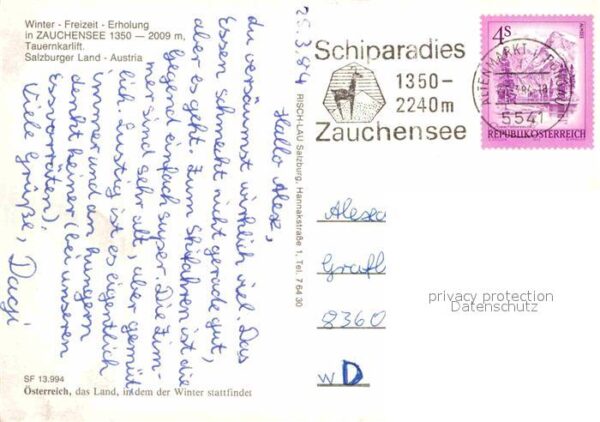 Winter - Freizeit - Erholung
in ZAUCHENSEE 1350 — 2009 m,
Tauernkarlift.
Salzburger Land - Austria
29.3.84
Hallo Alex,
du versäumst wirklich viel. Das
Essen schmeckt nicht gerade gut,
aber es geht. Zum Skifahren ist die
Gegend einfach super. Die Zim-
mer sind sehr alt, aber gemüt
lich. Lustig ist es eigentlich
immer und an hungern
denkt keiner (bei unseren
Essvorräten).
Viele Grüße,
SF 13.994
Österreich, das Land, in dem der Winter stattfindet
RISCH-LAU Salzburg, Hannakstraße 1, Tel. 7 64 30
Schiparadies
1350 —
2240 m
Zauchensee
ALTENMARKT
5541
4 S
REPUBLIK ÖSTERREICH
Alexa
Grafl
8360
W D
privacy protection
Datenschutz